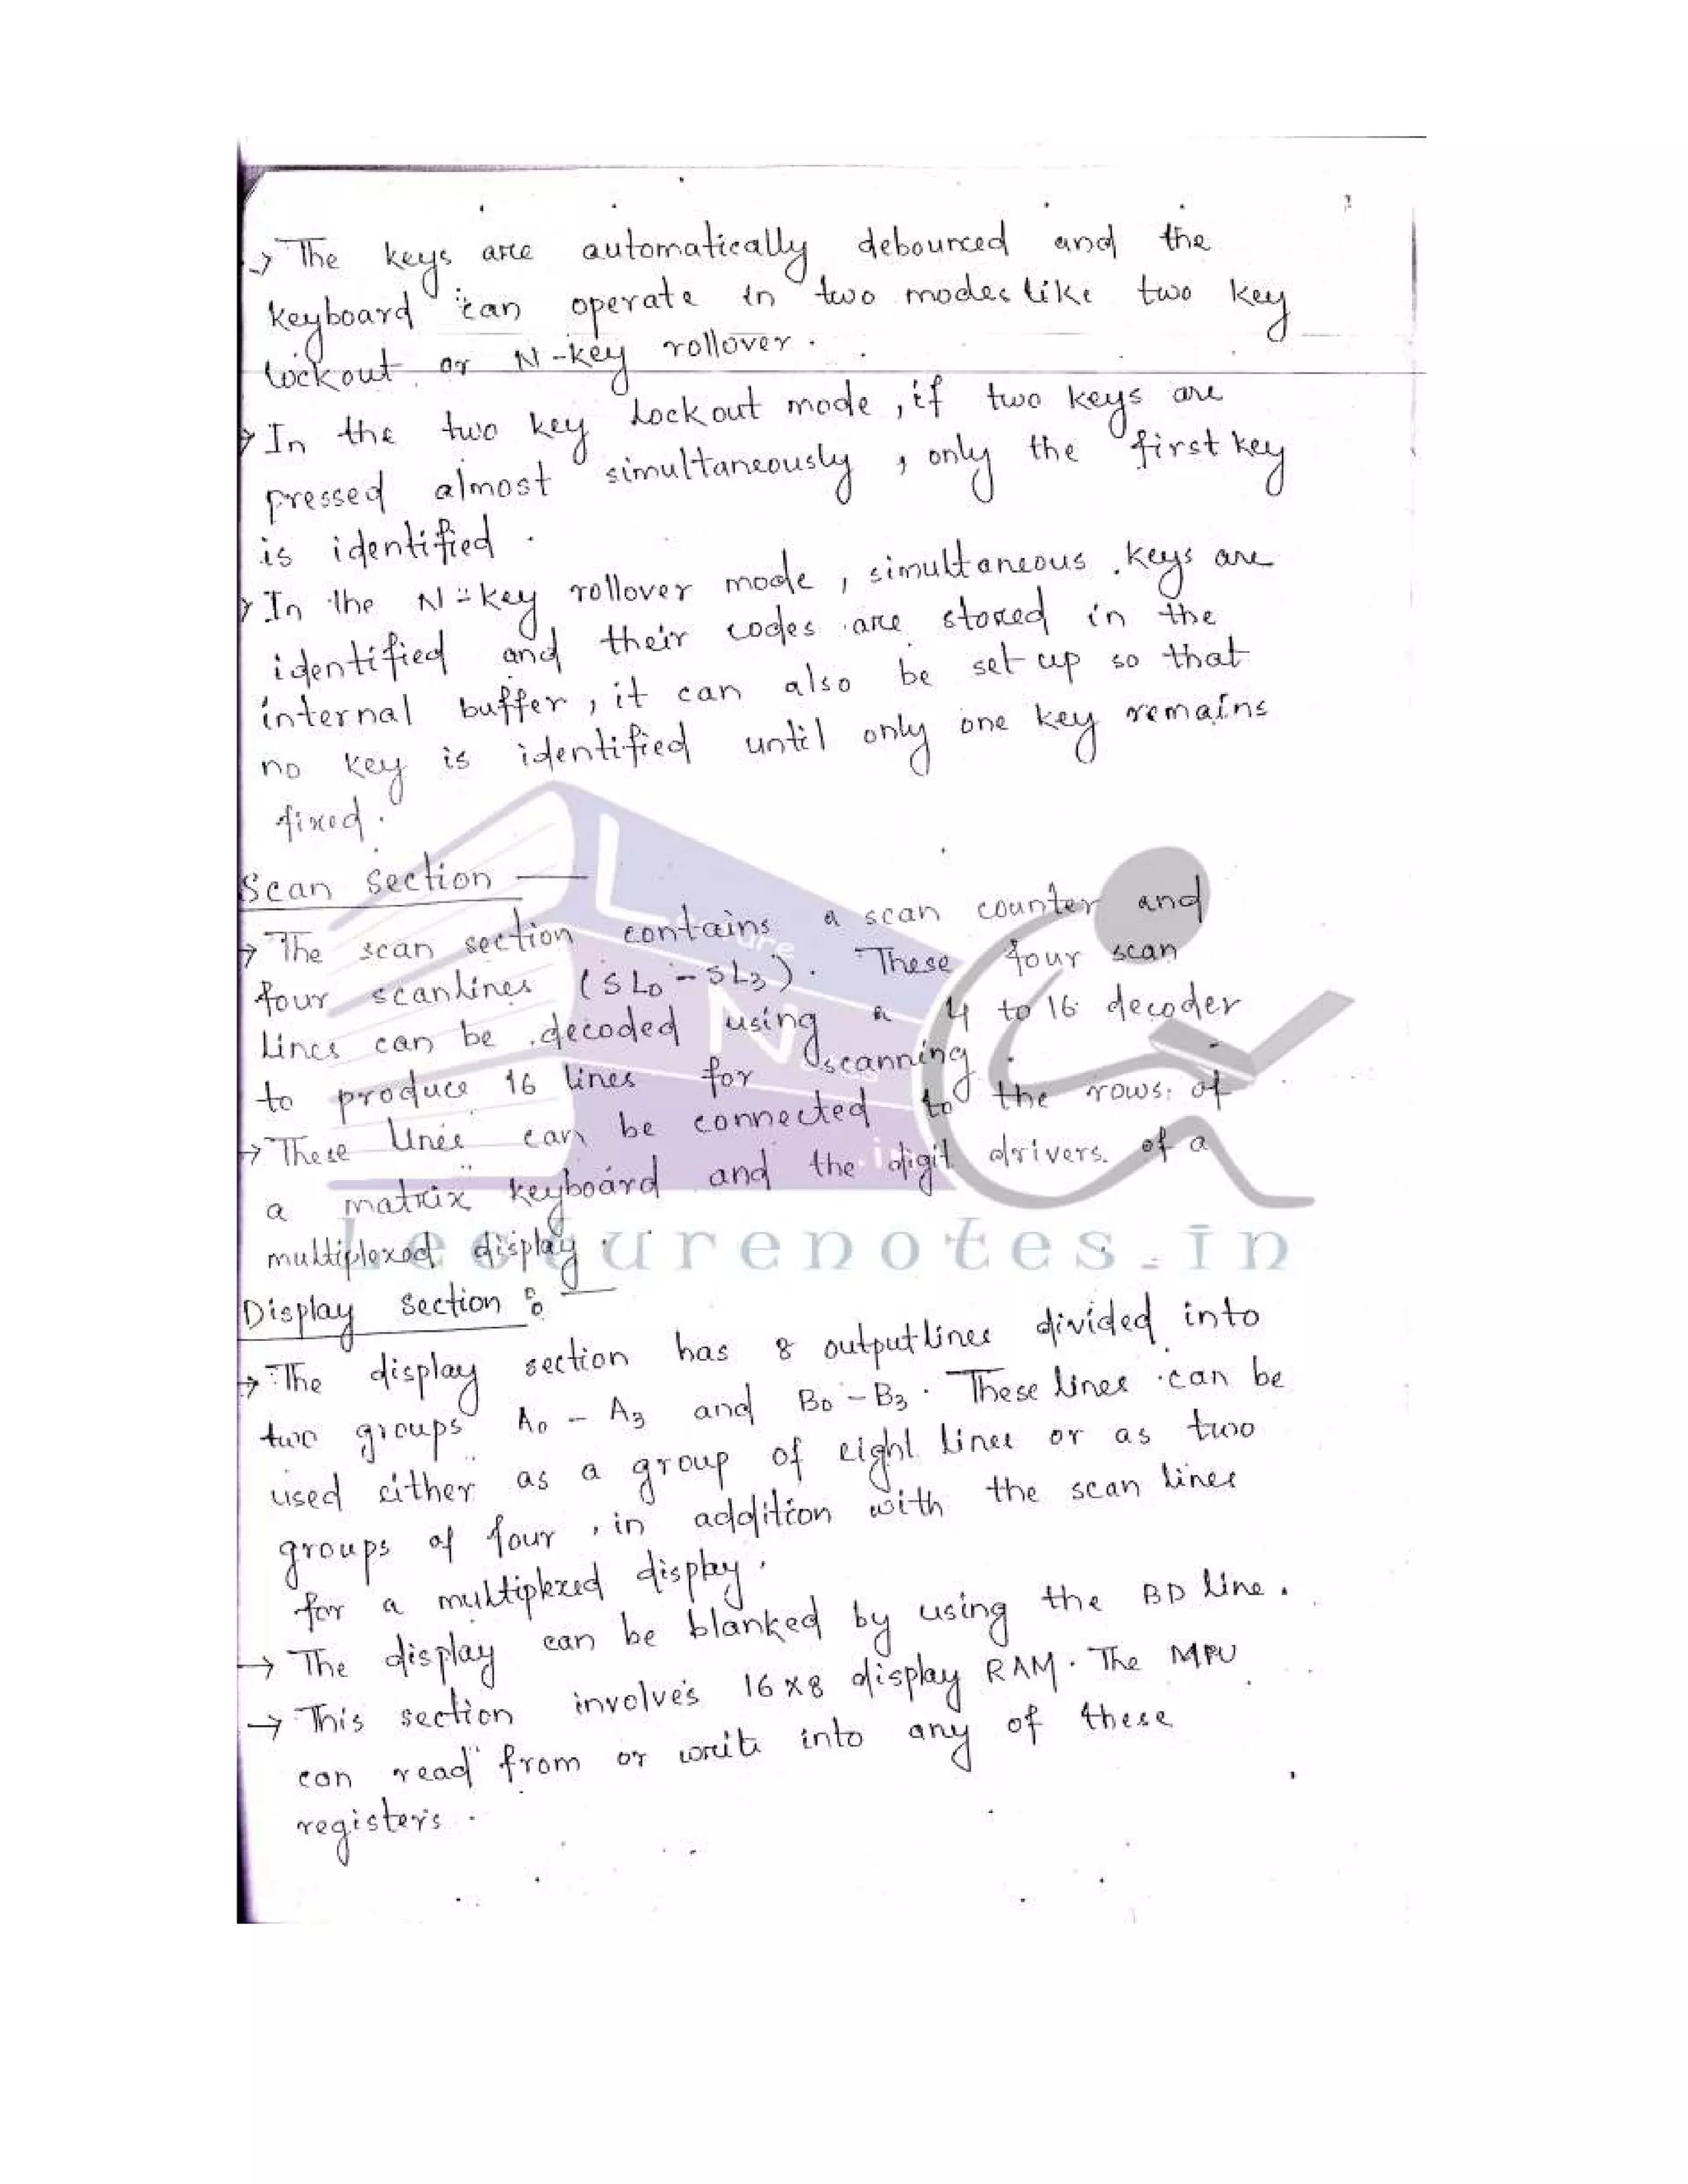 → The keys are automatically debounced and the
keyboard can operate in two modes like two key
lockout or N-key rollover.
→ In the two key Lockout mode, if two keys are
pressed almost simultaneously, only the first key
is identified.
→ In the N-key rollover mode, simultaneous keys are
identified and their codes are stored in the
internal buffer, it can also be set up so that
no key is identified until only one key remains
fixed.
Scan Section —
→ The scan section contains a scan counter and
four scanlines (SL0 - SL3). These four scan
Lines can be decoded using a 4 to 16 decoder
to produce 16 lines for scanning.
→ These lines can be connected to the rows of
a matrix keyboard and the digit drivers of a
multiplexed display.
Lecturenotes.in
Display Section :—
→ The display section has 8 output lines divided into
two groups A0 - A3 and B0 - B3. These lines can be
used either as a group of eight lines or as two
groups of four, in addition with the scan lines
for a multiplexed display.
→ The display can be blanked by using the BD line.
→ This section involves 16 x 8 display RAM. The MPU
can read from or write into any of these
registers.